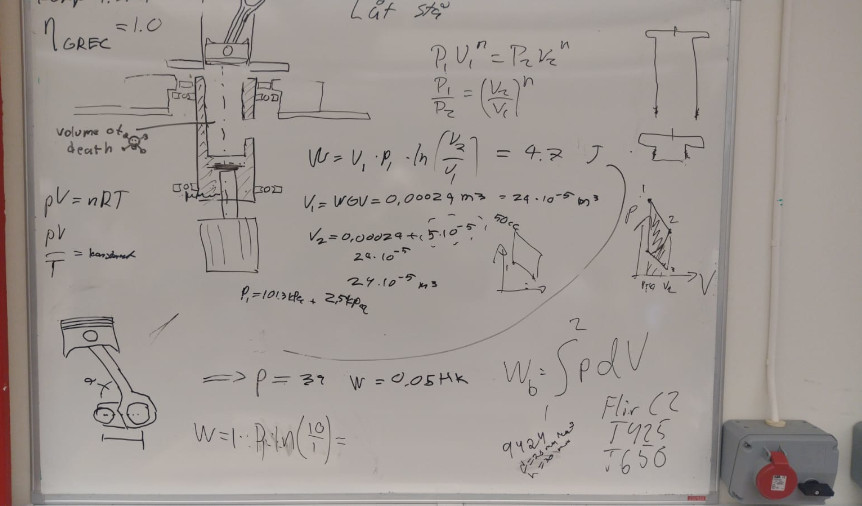 η GREC = 1.0
Låt stå
P₁ V₁ⁿ = P₂ V₂ⁿ
P₁/P₂ = (V₂/V₁)ⁿ
volume of death
W = V₁ · P₁ · ln(V₂/V₁) = 4.7 J
pV = nRT
V₁ = WGV = 0,00024 m³ = 24·10⁻⁵ m³
pV/T = konstant
V₂ = 0,00024 + 5·10⁻⁵
50cc
24·10⁻⁵
24·10⁻⁵ m³
P₁ = 101.3 kPa + 2,5 kPa
P
1
2
V₂
V
⇒ P = 39 W = 0.05 HK
W_b = ∫₁² p dV
W = 1 · P₁ · ln(10/1) =
9424
Flir C2
T425
T650